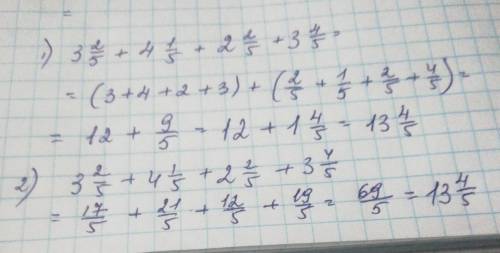 =
1) 3 2/5 + 4 1/5 + 2 2/5 + 3 4/5 =
= (3+4+2+3) + (2/5 + 1/5 + 2/5 + 4/5) =
= 12 + 9/5 = 12 + 1 4/5 = 13 4/5
2) 3 2/5 + 4 1/5 + 2 2/5 + 3 4/5
= 17/5 + 21/5 + 12/5 + 19/5 = 69/5 = 13 4/5